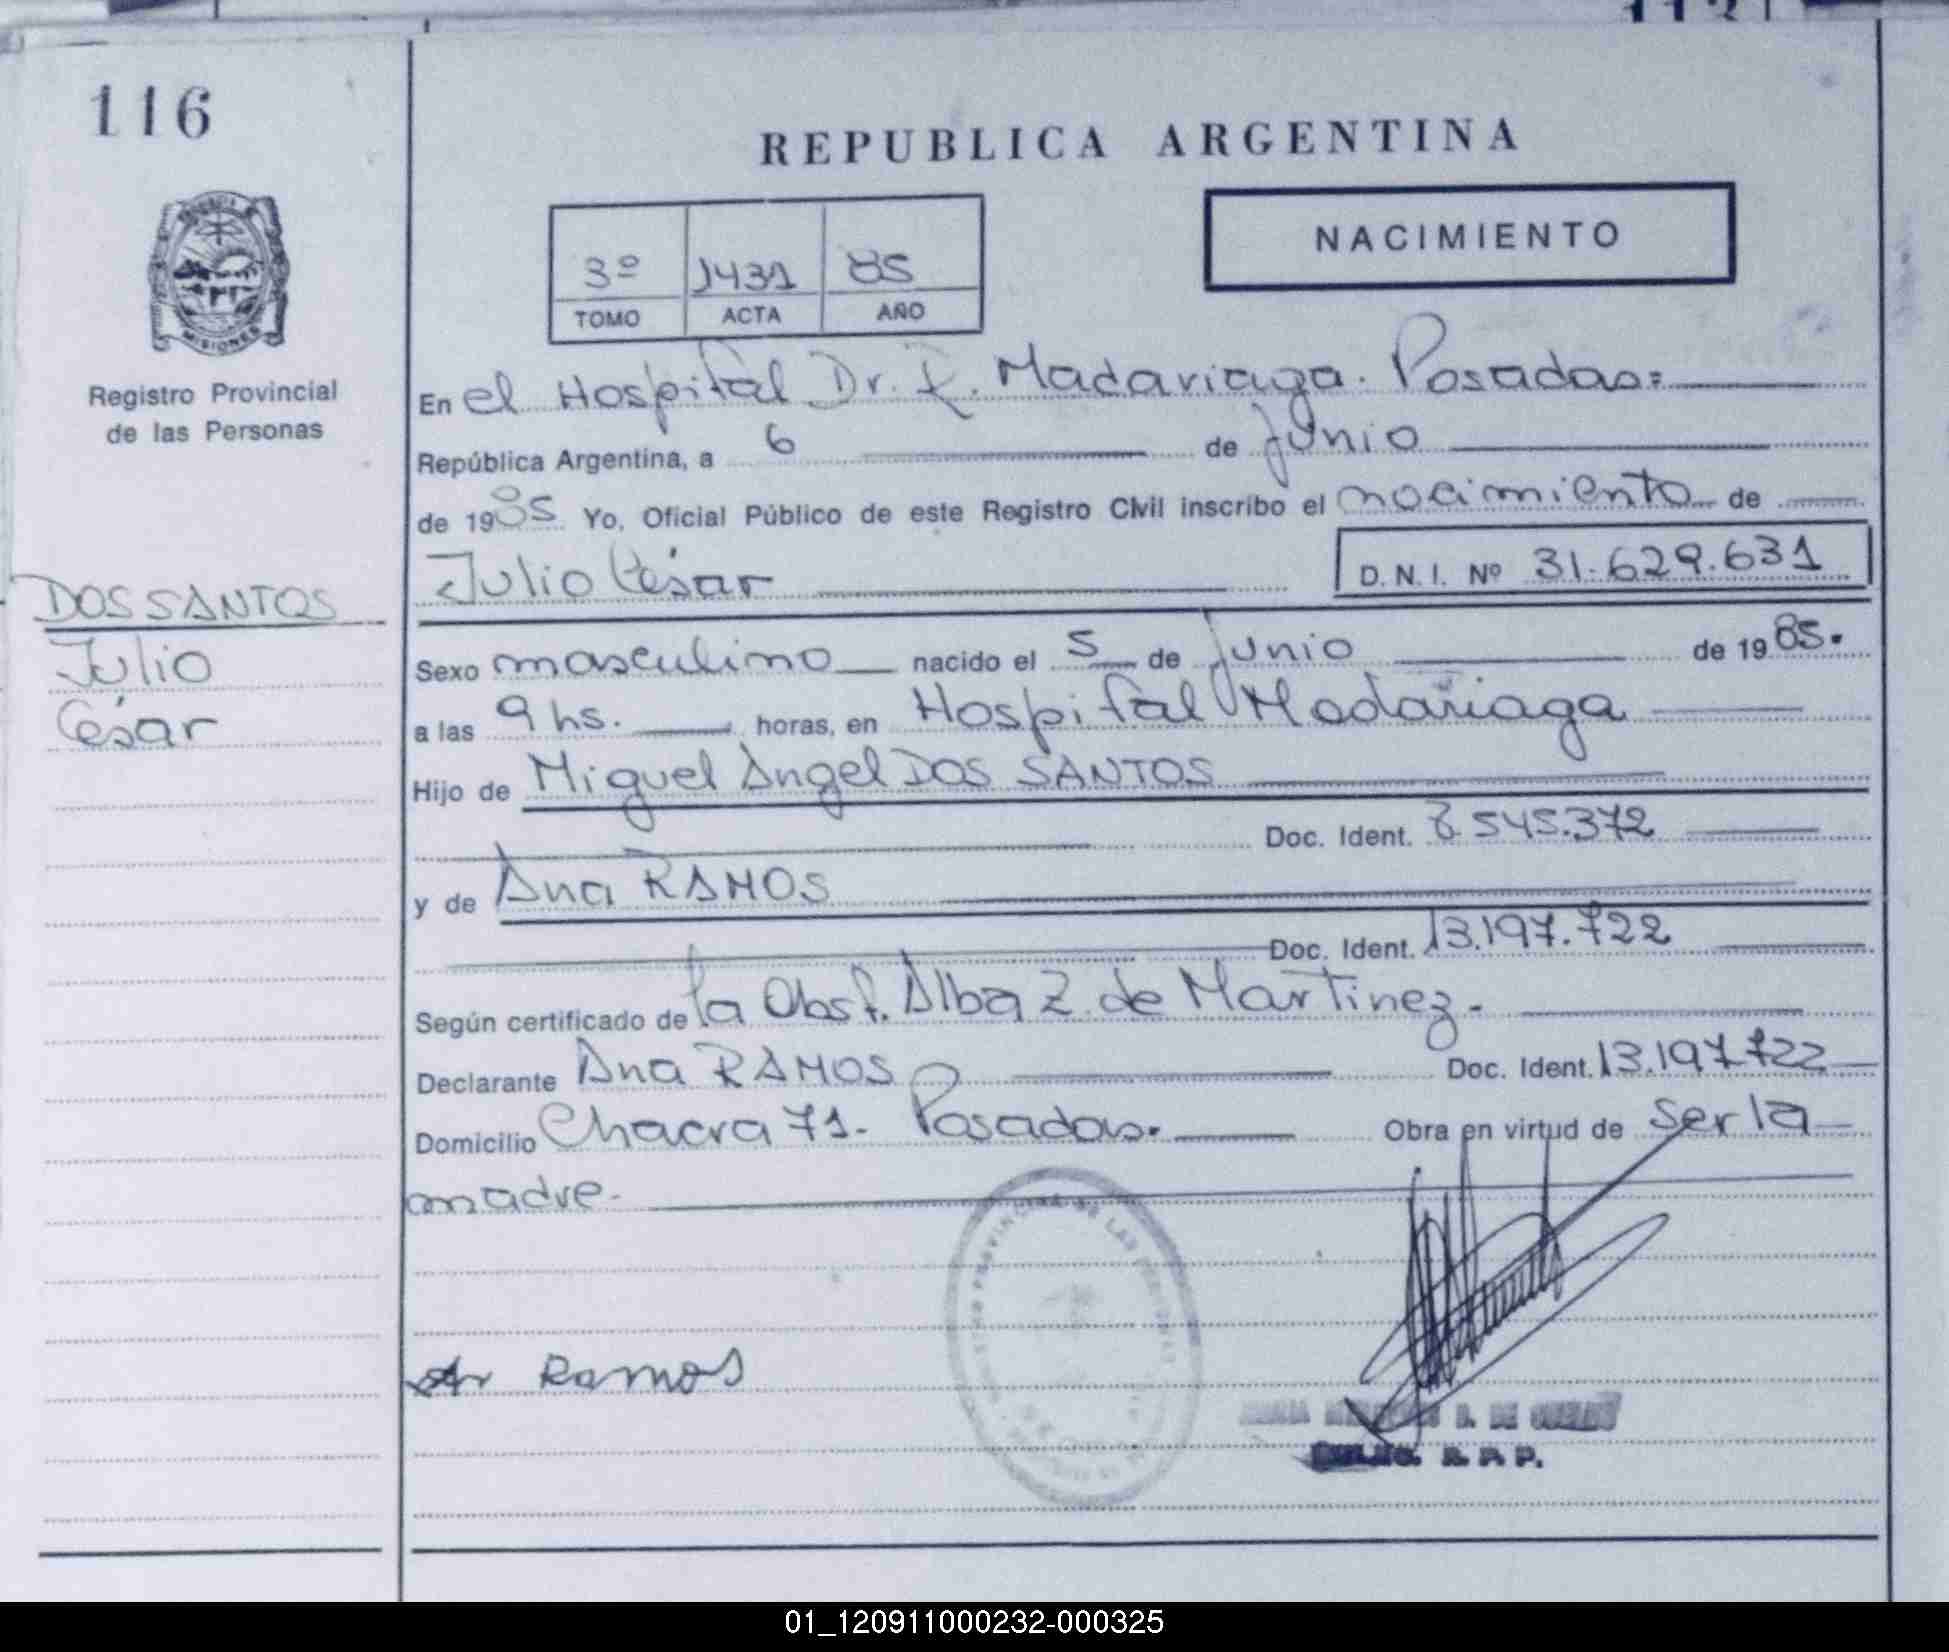 116
REPUBLICA ARGENTINA
NACIMIENTO
3º 1431 85
TOMO ACTA AÑO
MISIONES
Registro Provincial
de las Personas
DOS SANTOS
Julio
César
En el Hospital Dr. R. Madariaga. Posadas=
República Argentina, a 6 de junio
de 1985 Yo, Oficial Público de este Registro Civil inscribo el nacimiento de
Julio César D.N.I. Nº 31.629.631
Sexo masculino nacido el 5 de junio de 1985.
a las 9 hs. horas, en Hospital Madariaga
Hijo de Miguel Angel DOS SANTOS
Doc. Ident. 8.545.372
y de Ana RAMOS
Doc. Ident. 13.197.722
Según certificado de la Obst. Alba Z. de Martinez.
Declarante Ana RAMOS Doc. Ident. 13.197.722
Domicilio Chacra 71. Posadas. Obra en virtud de ser la
madre.
Ramos
R. P. P.
01_120911000232-000325